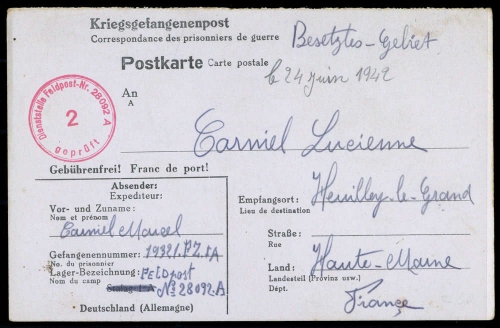 Kriegsgefangenenpost
Correspondance des prisonniers de guerre
Besetztes-Gebiet
Postkarte Carte postale
le 24 Juin 1942
An
A
Dienststelle Feldpost-Nr. 28092 A
2
geprüft
Carmiel Lucienne
Gebührenfrei! Franc de port!
Absender:
Expediteur:
Vor- und Zuname:
Nom et prénom
Carmiel Marcel
Gefangenennummer: 1932/.
No. du prisonnier
Lager-Bezeichnung: Feldpost
Nom du camp
Stalag I A N° 28092.A
Deutschland (Allemagne)
Empfangsort: Heuilley-le-Grand
Lieu de destination
Straße:
Rue
Land: Haute-Marne
Landesteil (Provinz usw.)
Dépt.
France